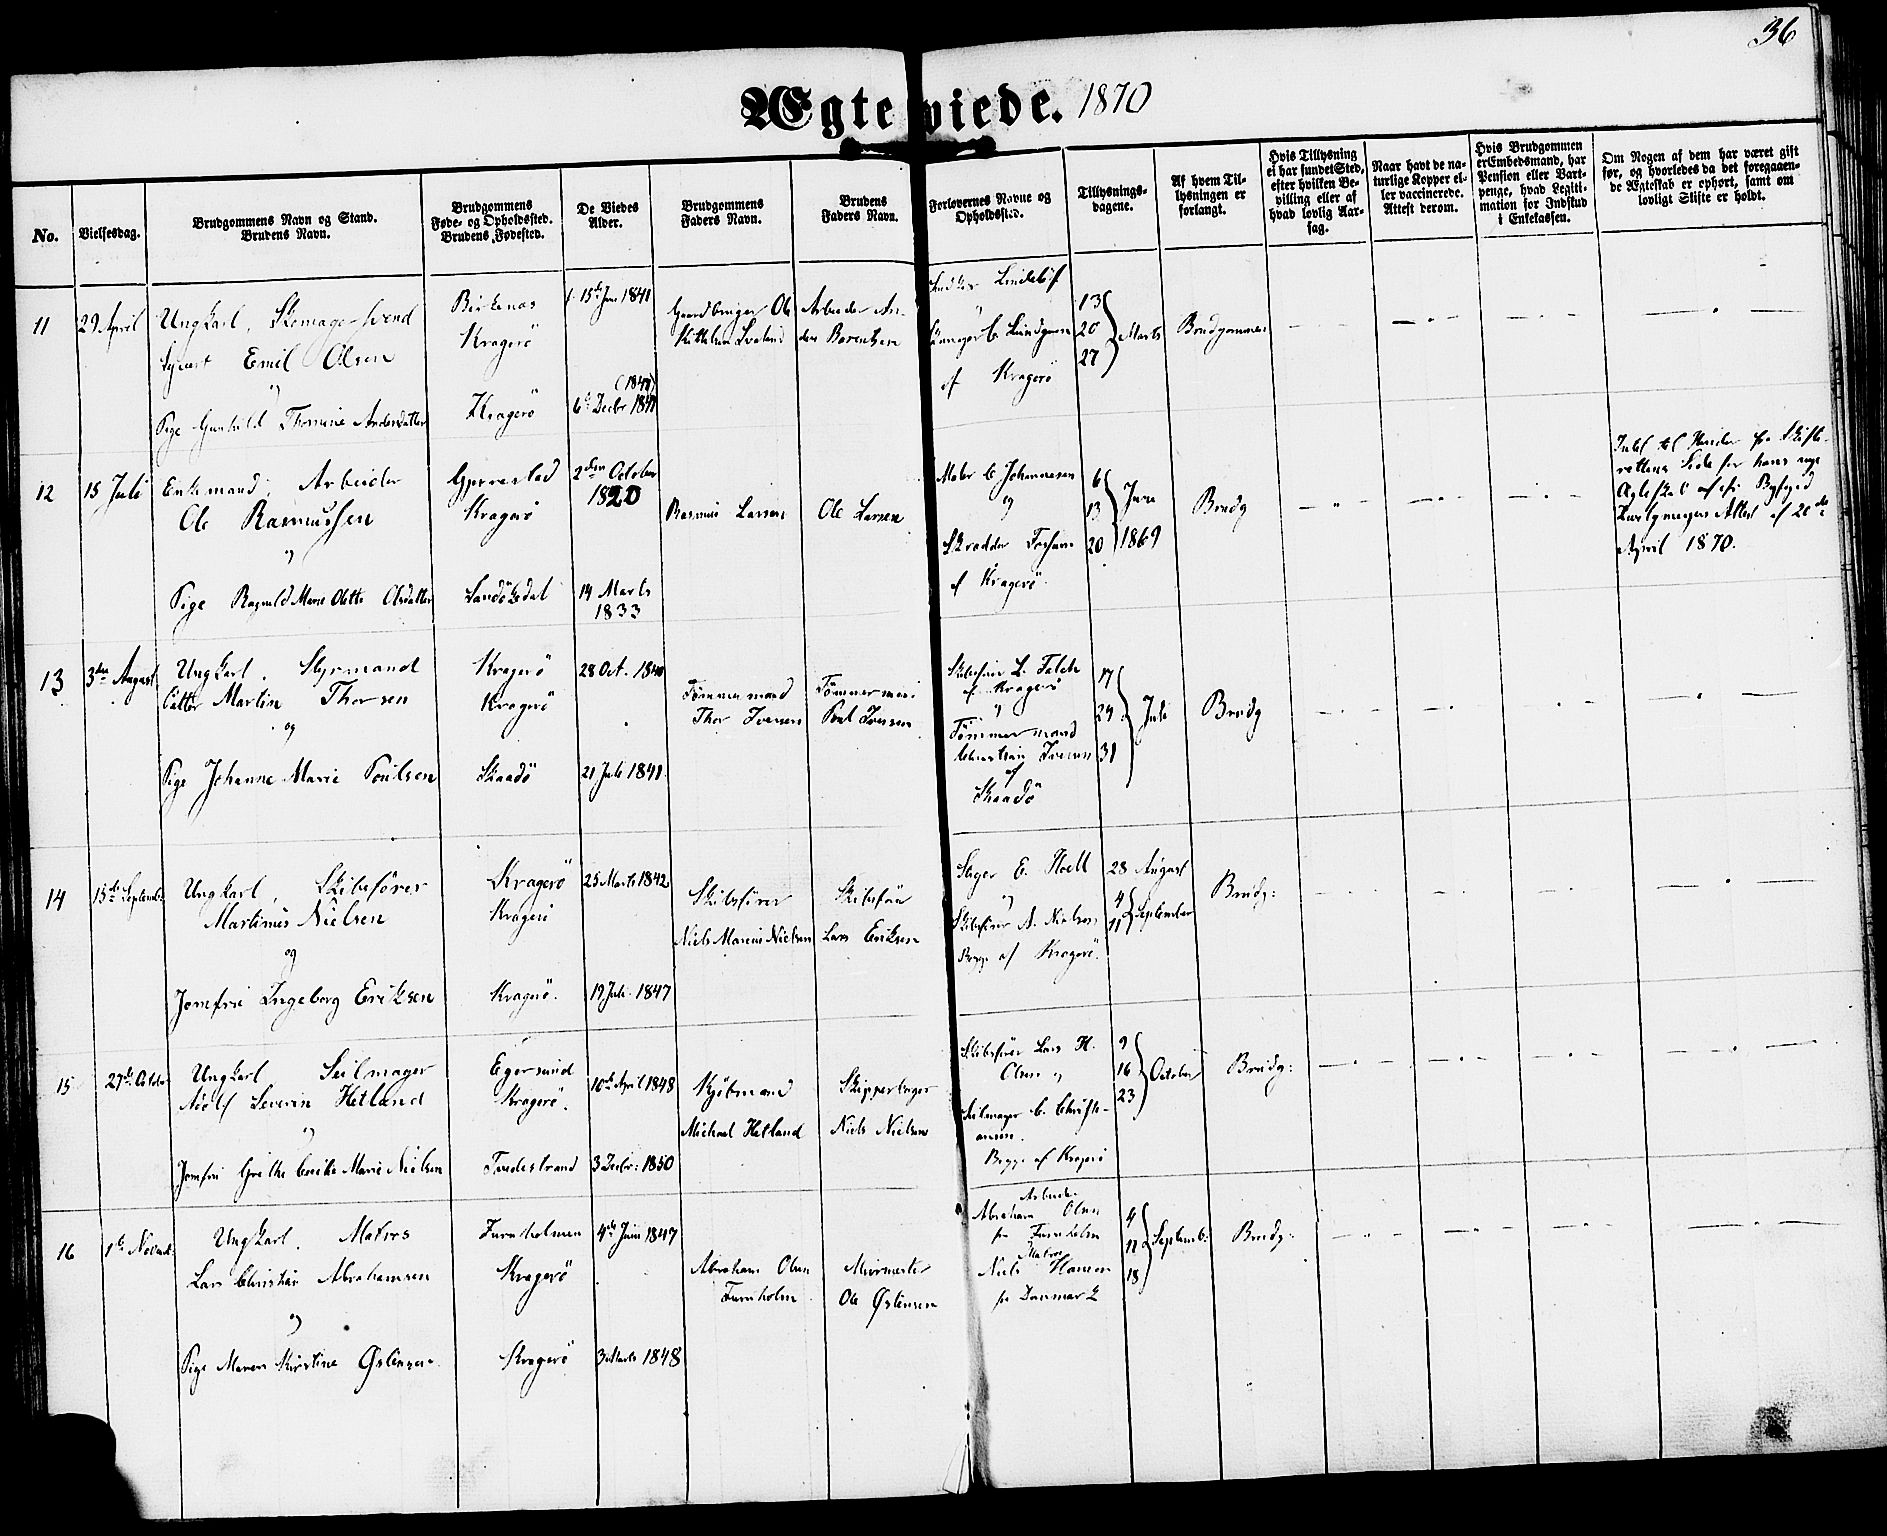 36
Ægteviede. 1870
No.
Vielsesdag.
Brudgommens Navn og Stand.
Brudens Navn.
Brudgommens
Føde- og Opholdssted.
Brudens Fødested.
De Viedes
Alder.
Brudgommens
Faders Navn.
Brudens
Faders Navn.
Forlovernes Navne og
Opholdssted.
Tillysnings-
dagene.
Af hvem Til-
lysningen er
forlangt.
Hvis Tillysning
ei har fundet Sted,
efter hvilken Be-
villing eller af
hvad lovlig Aar-
sag.
Naar havt de na-
turlige Kopper el-
ler vaccinerede.
Attest derom.
Hvis Brudgommen
er Embedsmand, har
Pension eller Vart-
penge, hvad Legiti-
mation for Indskud
i Enkekassen.
Om Nogen af dem har været gift
før, og hvorledes da det foregaaen-
de Ægteskab er ophørt, samt om
lovligt Skifte er holdt.
11
29 April
Ungkarl, Skomagersvend
Emil Olsen
Pige Gunhild Thomine Andersdatter
Birkenæs
Kragerö
Kragerö
15de Jan 1841
(1848)
6te Decbr 1841
Gaardbruger Ole
Arbeider An-
ders Berentsen
Lindelöf
C. Lundgreen
af Kragerö
13
20
27
Marts
Brudgommen
12
15 Juli
Enkemand, Arbeider
Ole Rasmussen
og
Pige Ragnild Marie Olette Olsdatter
Gjerrestad
Kragerö
Sandökedal
2den October
1820
14 Marts
1833
Rasmus Larsen
Ole Larsen
Maler C Johannesen
og
Skrædder
af Kragerö
6
13
20
Juni
1869
Brudg
Intet til Hinder fra Skifte-
rettens Side for hans nye
Ægteskab
Attest af 20de
April 1870.
13
3die August
Ungkarl, Styrmand
Martin Thorsen
og
Pige Johanne Marie Poulsen
Kragerö
Kragerö
Skaadö
28 Oct. 1840
21 Juli 1841
Tömmermand
Thor Iversen
Tömmermand
Poul Iversen
Skibsfører L. Falck
af Kragerö
og
Tömmermand
Christian Iversen
af
Skaadö
17
24
31
Juli
Brudg
14
15de September
Ungkarl, Skibsfører
Martinus Nielsen
og
Jomfru Ingeborg Eriksen
Kragerö
Kragerö
Kragerö.
25 Marts 1842
19 Juli 1847
Skibsfører
Niels Marcus Nielsen
Skibsfører
Lars Eriksen
E. Noell
og
Skibsfører A. Nielsen
Begge af Kragerö.
28 August
4
11
September
Brudg:
15
27de October
Ungkarl Seilmager
Adolf Severin Hetland
og
Jomfru Grethe Marie Nielsen
Egersund
Kragerö.
Tvedestrand
10de April 1848
3 Decbr: 1850
Kjöbmand
Michael Hetland
Skipperborger
Niels Nielsen
Skibsfører Lars H.
Olsen og
Seilmager C. Christi-
ansen.
Begge af Kragerö
9
16
23
October
Brudg:
16
1ste Novemb.
Ungkarl, Matros
Lars Christian Abrahamsen
og
Pige Maren Kirstine Østensen
Furuholmen
Kragerö
Kragerö
4de Juni 1847
3 Marts 1848
Abraham Olsen
Furuholm
Muurmester
Ole Østensen
Arbeider
Abraham Olsen
fra Furuholm
Matros
Niels Hansen
fra Danmark
4
11
18
Septemb:
Brudg: